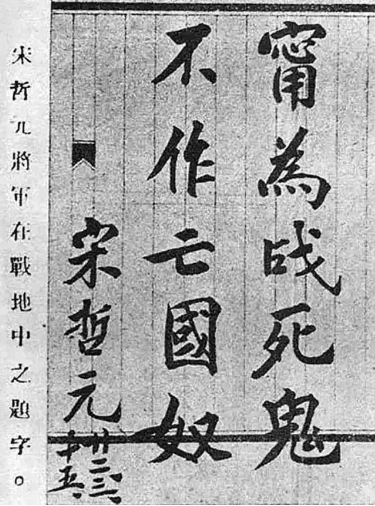 甯為战死鬼
不作亡國奴
宋哲元
廿二、三、
十五、
宋哲元將軍在戰地中之題字。